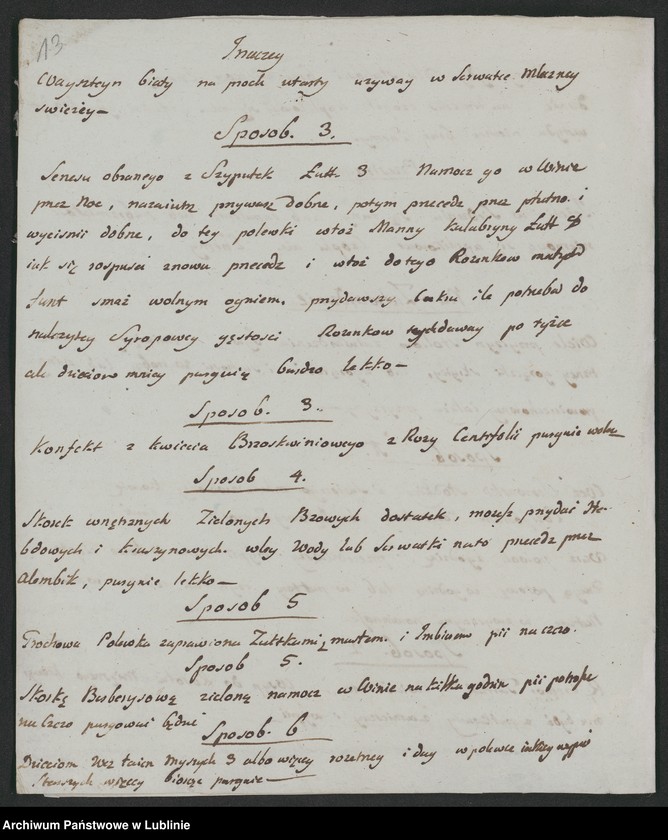 13
Inaczey
Wayszteyn biały na proch utarty uzyway w Serwatce Mleczney
swieżey—
Sposob. 3.
Senesu obranego z Szypułek Łutt. 3 Namocz go w Winie
przez Noc, nazaiutrz przywarz dobrze, potym przecedz przez płutno. i
wyciśnii dobrze, do tey polewki włoż Manny kalabryny Łutt
iak się rospusci znowu przecedz i włoż do tego Rozenkow małych
funt smaż wolnym ogniem. przydawszy Cukru ile potrzeba do
należytey Syropowey gęstosci Rozenkow tych daway po łyżce
ale dzieciom mniey purguią bardzo lekko—
Sposob. 3..
Konfekt z kwiecia Brzoskwiniowego z Rozy Centyfolii purguie wolno
Sposob 4.
Skorek wnętrznych Zielonych Bzowych dostatek, możesz przydać He-
bdowych i kruszynowych. wley Wody lub Serwatki na to przecedz przez
Alembik, purguie lekko—
Sposob 5
Grochowa Polewka zaprawiona Zułtkami, masłem. i Imbirem pii na czczo.
Sposob 5.
Skorkę Berberysową zieloną namocz w Winie na kilka godzin pii potrosze
na Czczo purgować będzie
Sposob. 6
Dzieciom Wez łaien Myszych 3 albo więcy rozetrzey i day w polewce
Starszych więcey biorąc purguie—
Archiwum Państwowe w Lublinie